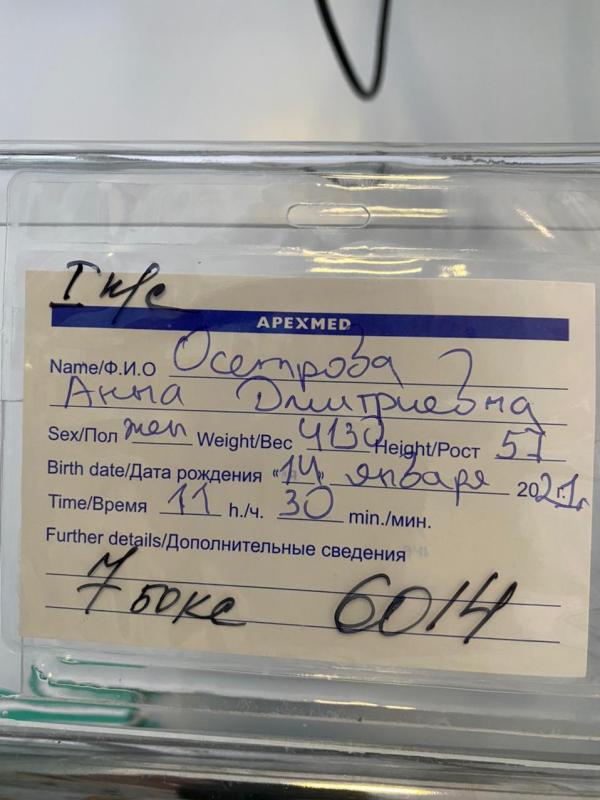 I н/с
APEXMED
Name/Ф.И.О Осетрова
Анна Дмитриевна
Sex/Пол жен Weight/Вес 4130 Height/Рост 57
Birth date/Дата рождения «14» января 2021г.
Time/Время 11 h./ч. 30 min./мин.
Further details/Дополнительные сведения
7 бокс 6014